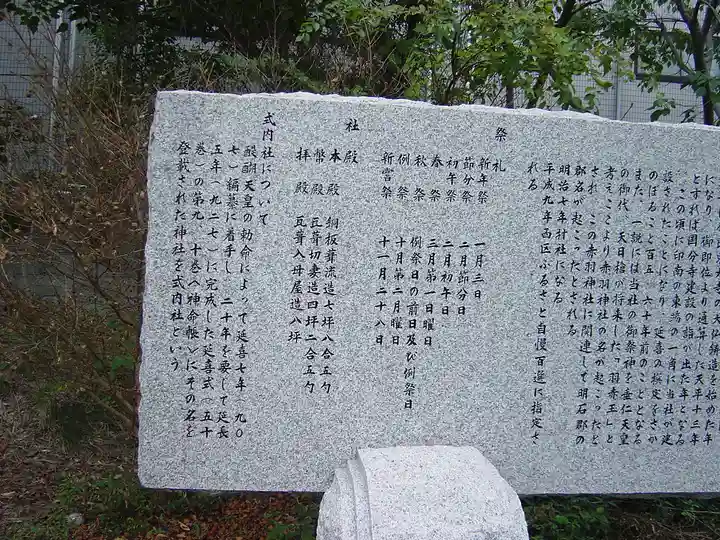 になり、
とすれば国分寺建設の詔の出た年となる
この頃に印南の東端の一角に当社が建
設されたことになり、延喜の撰定をさか
のぼること百五、六十年前のこととなる
また、一説には当社の御祭神を垂仁天皇
の御代、天日槍の将来した「羽赤玉」と
考えことより赤羽神社の名が起こったと
され、この赤羽神社に関連して明石郡の
郡名が起こったとされる
明治七年村社になる
平成九年西区ふるさと自慢百選に指定さ
れる
祭礼
新年祭 一月三日
節分祭 二月節分日
初午祭 二月初午日
春祭 三月第一日曜日
秋祭 例祭日の前日及び例祭日
例祭 十月第二月曜日
新嘗祭 十一月二十八日
社殿
本殿 銅板葺流造七坪八合五勺
幣殿 瓦葺切妻造四坪二合五勺
拝殿 瓦葺入母屋造八坪
式内社について
醍醐天皇の勅命によって延喜七年(九〇
七)編纂に着手し、二十年を要して延長
五年(九二七)に完成した延喜式(五十
巻)の第九、十巻〈神命帳〉にその名を
登載された神社を式内社という